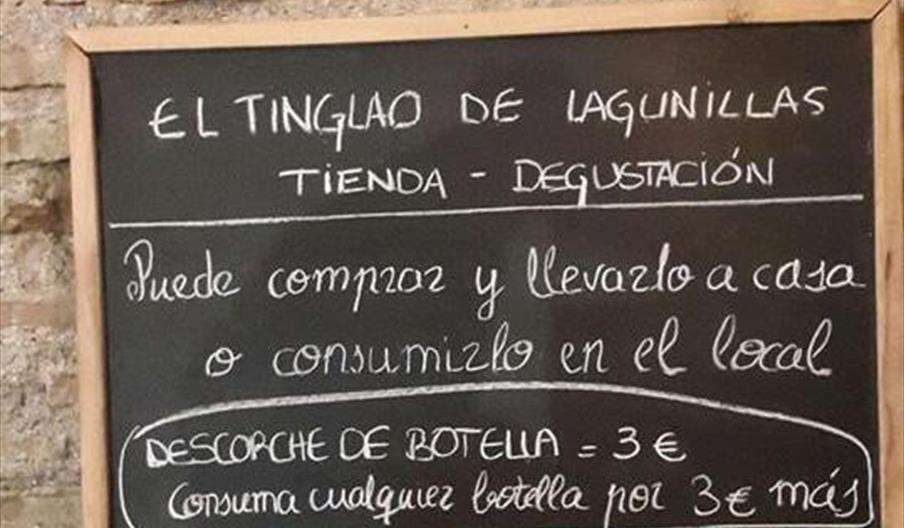 EL TINGLAO DE LAGUNILLAS
TIENDA - DEGUSTACIÓN
Puede comprar y llevarlo a casa
o consumirlo en el local
DESCORCHE DE BOTELLA = 3 €
Consuma cualquier botella por 3 € más